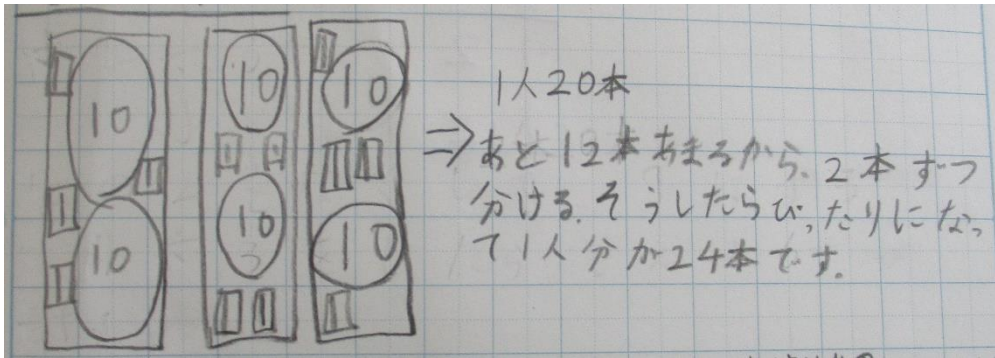 10
10
10
10
10
10
1人20本
あと12本あまるから、2本ずつ
分ける。そうしたらぴったりになっ
て1人分が24本です。